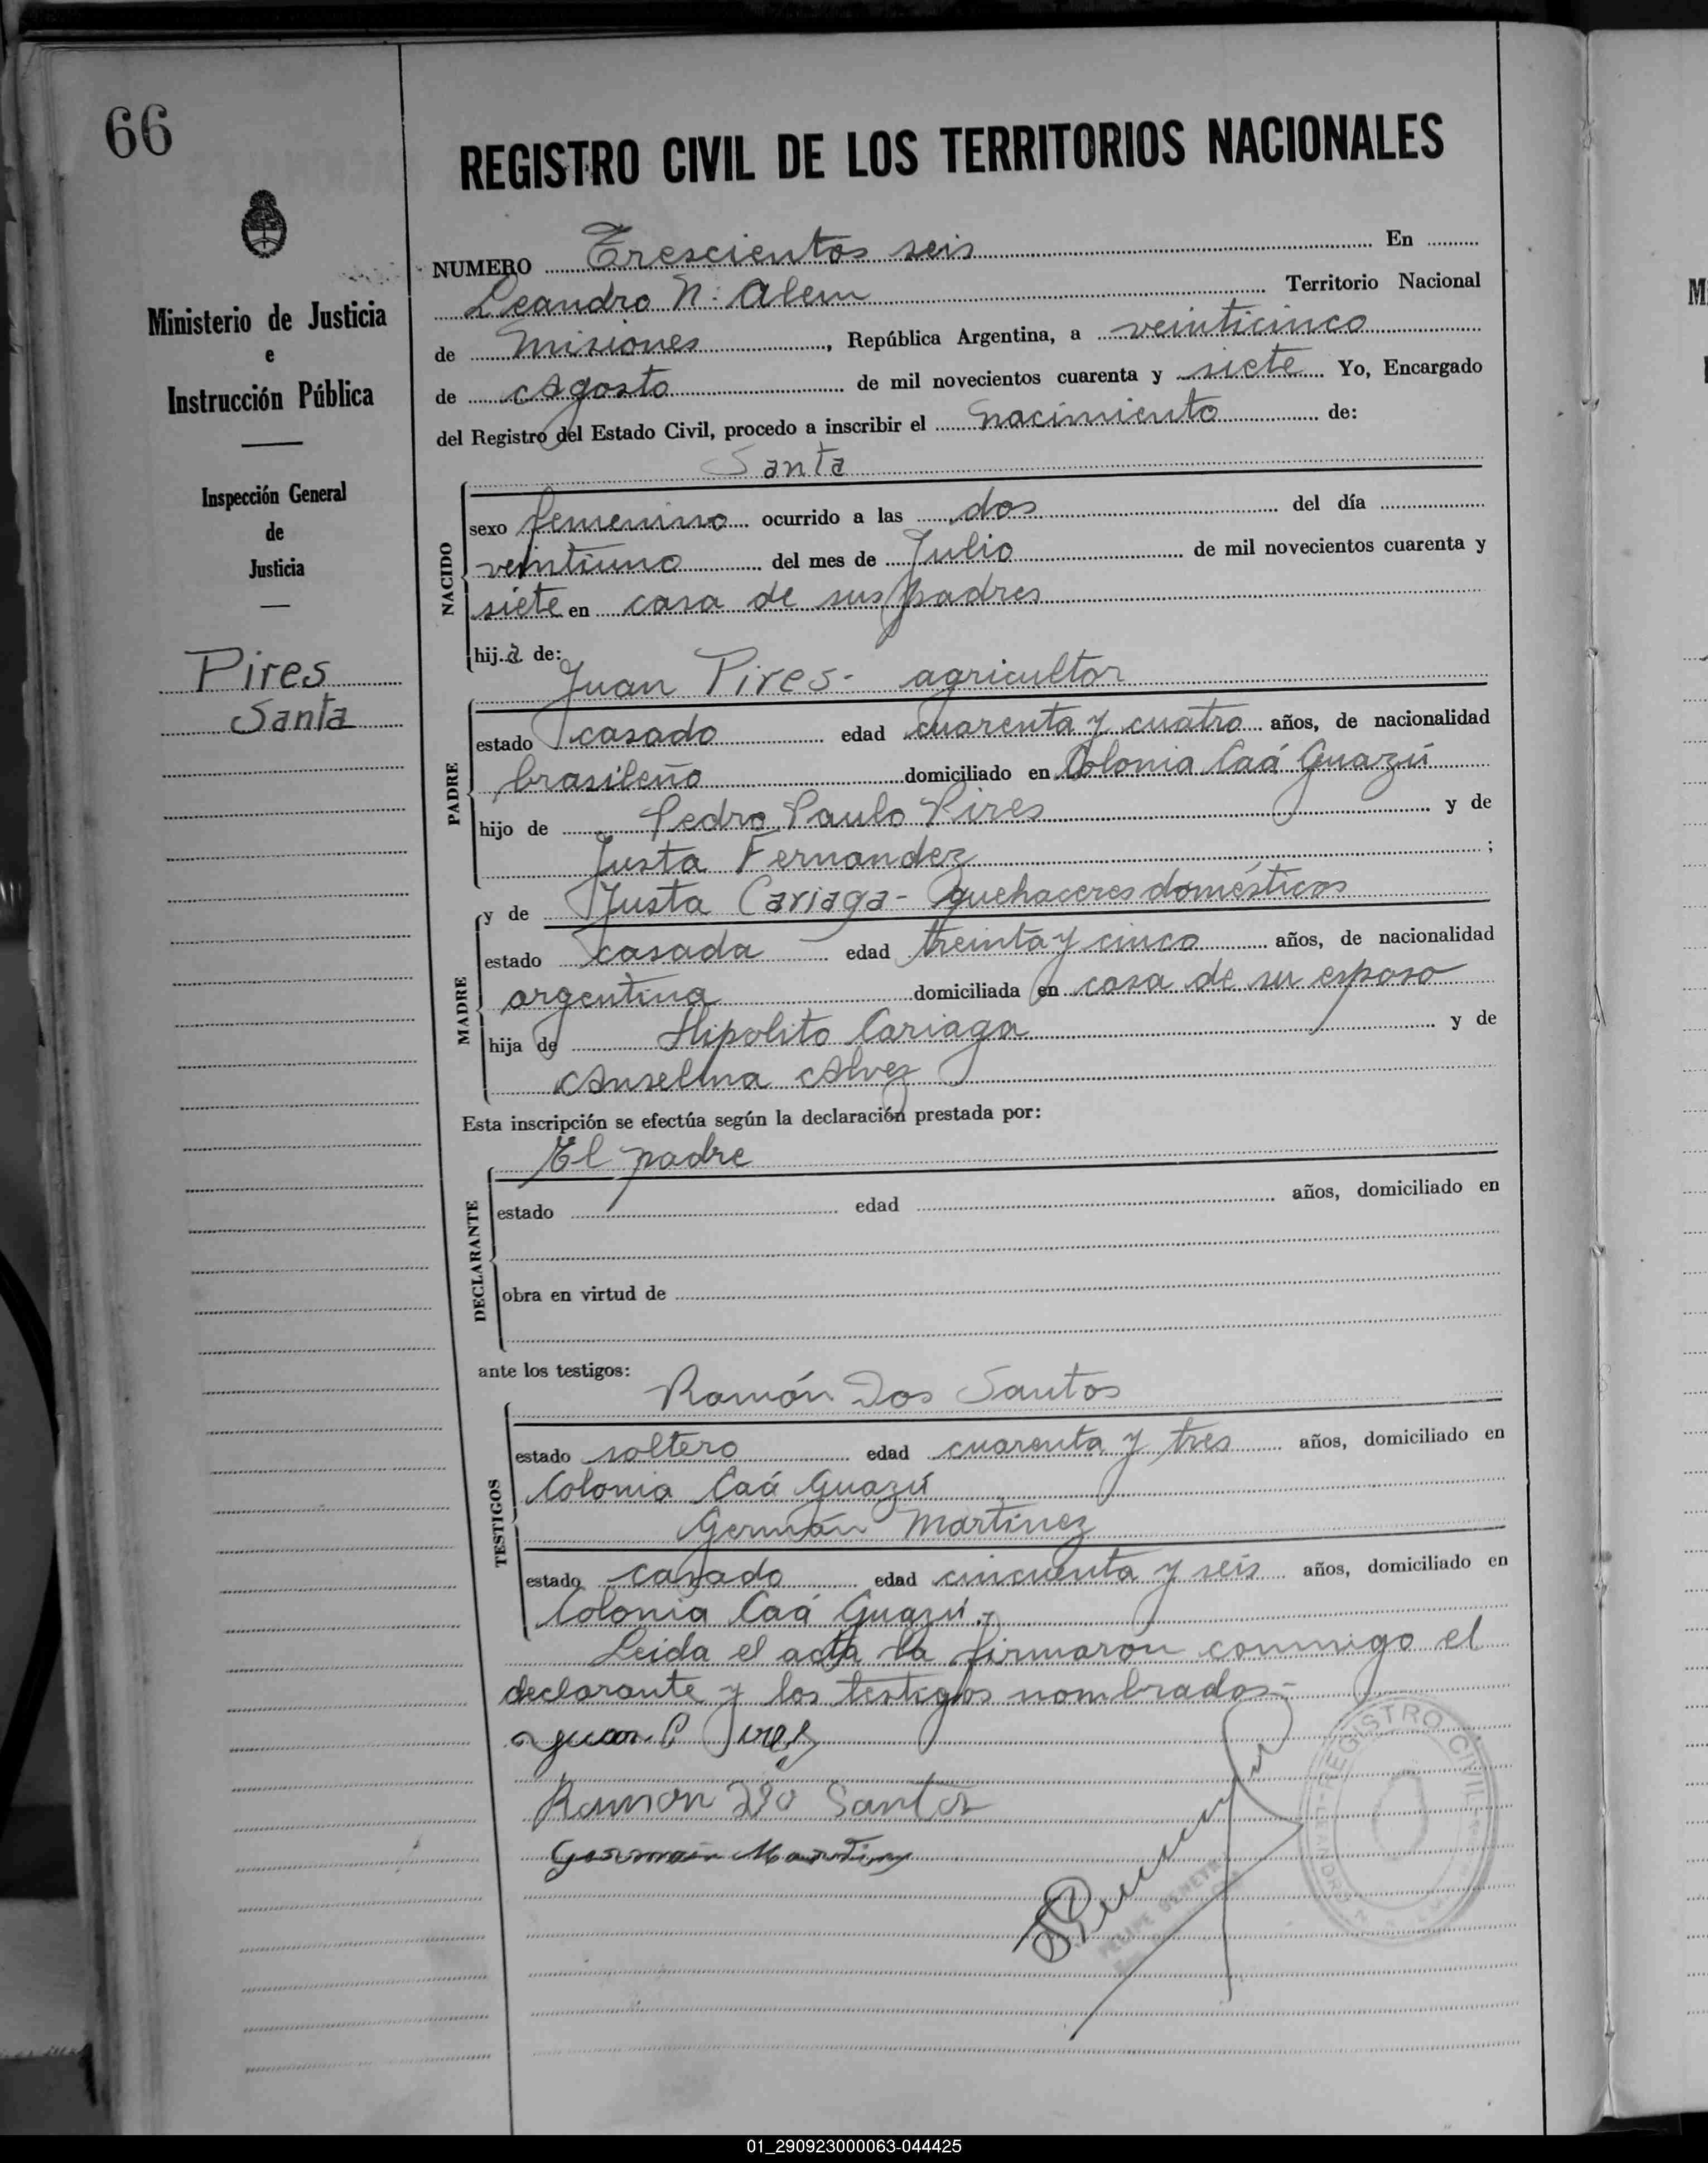 66
Ministerio de Justicia
e
Instrucción Pública
Inspección General
de
Justicia
Pires
Santa
REGISTRO CIVIL DE LOS TERRITORIOS NACIONALES
NUMERO Trescientos seis En
Leandro N. Alem Territorio Nacional
de Misiones, República Argentina, a veinticinco
de Agosto de mil novecientos cuarenta y siete Yo, Encargado
del Registro del Estado Civil, procedo a inscribir el nacimiento de:
Santa
NACIDO
sexo femenino ocurrido a las dos del día
veintiuno del mes de Julio de mil novecientos cuarenta y
siete en casa de sus padres
hija de:
Juan Pires - agricultor
PADRE
estado casado edad cuarenta y cuatro años, de nacionalidad
brasileño domiciliado en Colonia Caá Guazú
hijo de Pedro Paulo Pires y de
Justa Fernandez ;
y de Justa Cariaga - quehaceres domésticos
MADRE
estado casada edad treinta y cinco años, de nacionalidad
argentina domiciliada en casa de su esposo
hija de Hipolito Cariaga y de
Anselma Alvez
Esta inscripción se efectúa según la declaración prestada por:
El padre
DECLARANTE
estado edad años, domiciliado en
obra en virtud de
ante los testigos:
Ramón Dos Santos
TESTIGOS
estado soltero edad cuarenta y tres años, domiciliado en
Colonia Caá Guazú
Germán Martinez
estado casado edad cincuenta y seis años, domiciliado en
Colonia Caá Guazú.-
Leida el acta la firmaron conmigo el
declarante y los testigos nombrados-
Juan P Pires
Ramon Do Santos
German Martinez
REGISTRO CIVIL
FELIPE
M
01_290923000063-044425